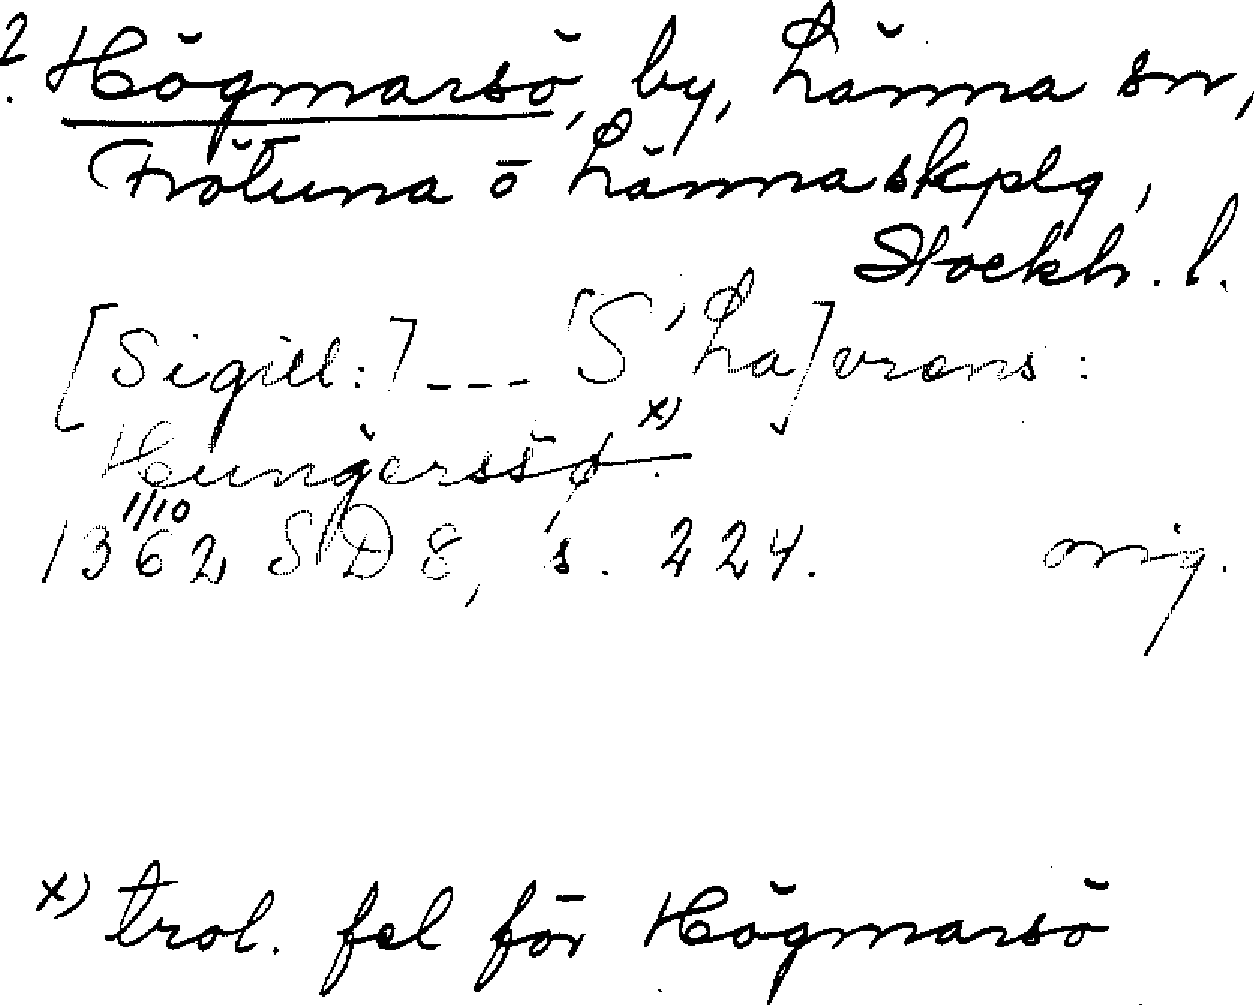 ? Högmarsö, by, Länna sn,
Frötuna o Länna skplg,
Stockh. l.
[Sigill:] --- [S' La]vrens:
Hungerssø x)
1/10
1362 SD 8, s. 224. orig.
x) trol. fel för Högmarsö